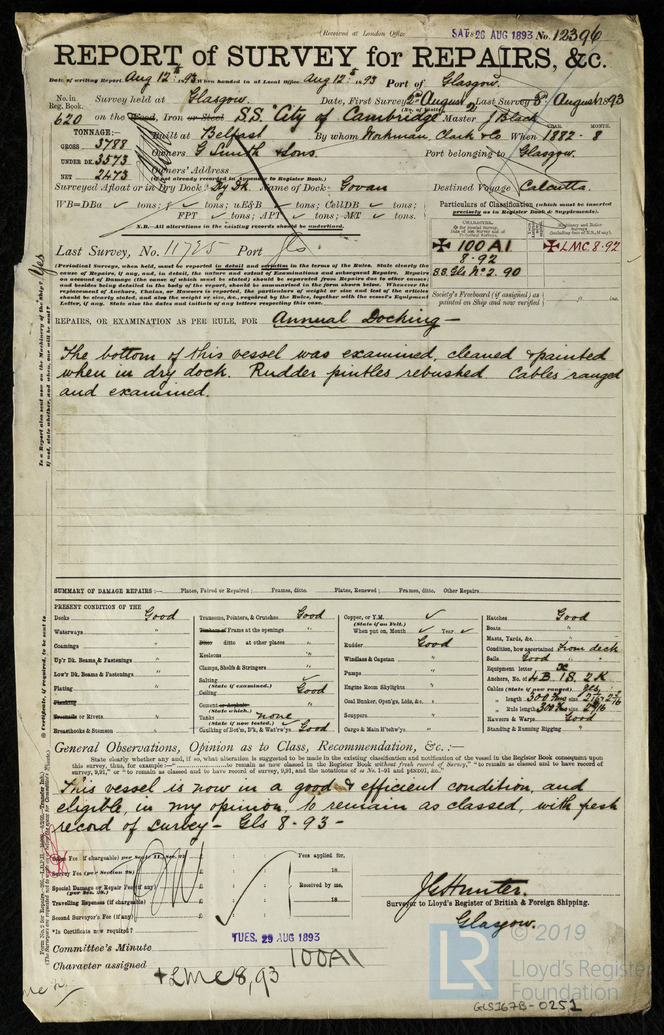 (Received at London Office SAT. 26 AUG 1893 No. 12396
REPORT of SURVEY for REPAIRS, &c.
Date of writing Report Aug 12th 1893 When handed in at Local Office Aug 12th 1893 Port of Glasgow.
No. in Reg. Book. Survey held at Glasgow. Date, First Survey 2nd August Last Survey 5th August 1893
620 on the Wood, Iron or Steel S.S. "City of Cambridge" Master J Black
TONNAGE:— Built at Belfast By whom Workman, Clark & Co When 1882 - 8
GROSS 3788 Owners G Smith & Sons. Port belonging to Glasgow.
UNDER DK. 3573 Owners' Address
NET 2473 (if not already recorded in Appendix to Register Book.)
Surveyed Afloat or in Dry Dock Dry Dk. Name of Dock Govan Destined Voyage Calcutta.
WB=DBa ✓ tons; f ✓ tons; uE&B ✓ tons; CellDB ✓ tons;
FPT ✓ tons; APT ✓ tons; MT ✓ tons.
N.B.—All alterations in the existing records should be underlined.
Particulars of Classification (which must be inserted
precisely as in Register Book & Supplements).
✠ 100A1 ✠ LMC 8.92
8.92
S.S. Gls No 2. 90
Last Survey, No. 11725 Port Gls
Society's Freeboard (if assigned) as
painted on Ship and now verified
(Periodical Surveys, when held, must be reported in detail and seriatim in the terms of the Rules. State clearly the
cause of Repairs, if any, and, in detail, the nature and extent of Examinations and subsequent Repairs. Repairs
on account of Damage (the cause of which must be stated) should be separated from Repairs due to other causes;
and besides being detailed in the body of the report, should be summarised in the form shown below. Whenever the
replacement of Anchors, Chains, or Hawsers is reported, the particulars of weight or size and test of the articles
should be clearly stated, and also the weight or size, &c., required by the Rules, together with the vessel's Equipment
Letter, if any. State also the dates and initials of any letters respecting this case.
REPAIRS, OR EXAMINATION AS PER RULE, FOR Annual Docking —
The bottom of this vessel was examined, cleaned & painted
when in dry dock. Rudder pintles rebushed. Cables ranged
and examined.
Yes
SUMMARY OF DAMAGE REPAIRS:— Plates, Faired or Repaired; Frames, ditto. Plates, Renewed; Frames, ditto. Other Repairs
PRESENT CONDITION OF THE
Decks Good
Waterways "
Coamings "
Up'r Dk. Beams & Fastenings "
Low'r Dk. Beams & Fastenings "
Plating "
Planking
Treenails or Rivets "
Breasthooks & Stemson "
Transoms, Pointers, & Crutches Good
Timbers of Frame at the openings "
Ditto ditto at other places "
Keelsons "
Clamps, Shelfs & Stringers "
Salting ✓
(State if examined.)
Ceiling Good
Cement or Asphalt "
(State which.)
Tanks none
(State if now tested.)
Caulking of Bot'm, D'k, & Wat'rw'ys Good
Copper, or Y.M. ✓
(State if on Felt.)
When put on, Month ✓ Year ✓
Rudder Good
Windlass & Capstan "
Pumps "
Engine Room Skylights "
Coal Bunker, Open'gs, Lids, &c. "
Scuppers "
Cargo & Main H'tchw'ys "
Hatches Good
Boats "
Masts, Yards, &c. "
Condition, how ascertained From deck
Sails Good
Equipment letter
Anchors, No. of 4B. 1S. 2K
Cables (State if now ranged) Yes,
" length 300 fms size
" Rule length 300 fms size
Hawsers & Warps Good
Standing & Running Rigging "
General Observations, Opinion as to Class, Recommendation, &c. :—
State clearly whether any, and if so, what alteration is suggested to be made in the existing classification and notification of the vessel in the Register Book consequent upon
This vessel is now in a good & efficient condition, and
eligible, in my opinion, to remain as classed, with fresh
record of survey – Gls 8.93 –
Survey Fee (per Section 28) £ : :
Special Damage or Repair Fee (if any) £ : :
(per Sec. 28.)
Travelling Expenses (if chargeable) £ : :
Second Surveyor's Fee (if any) £ : :
Fees applied for,
18
Received by me,
18
Is Certificate now required?
J G Hunter.
Surveyor to Lloyd's Register of British & Foreign Shipping.
Glasgow.
TUES. 29 AUG 1893
Committee's Minute
100A1
Character assigned
+LMC 8,93
© 2019
LR
Lloyd's Register
Foundation
GLS167B-0251